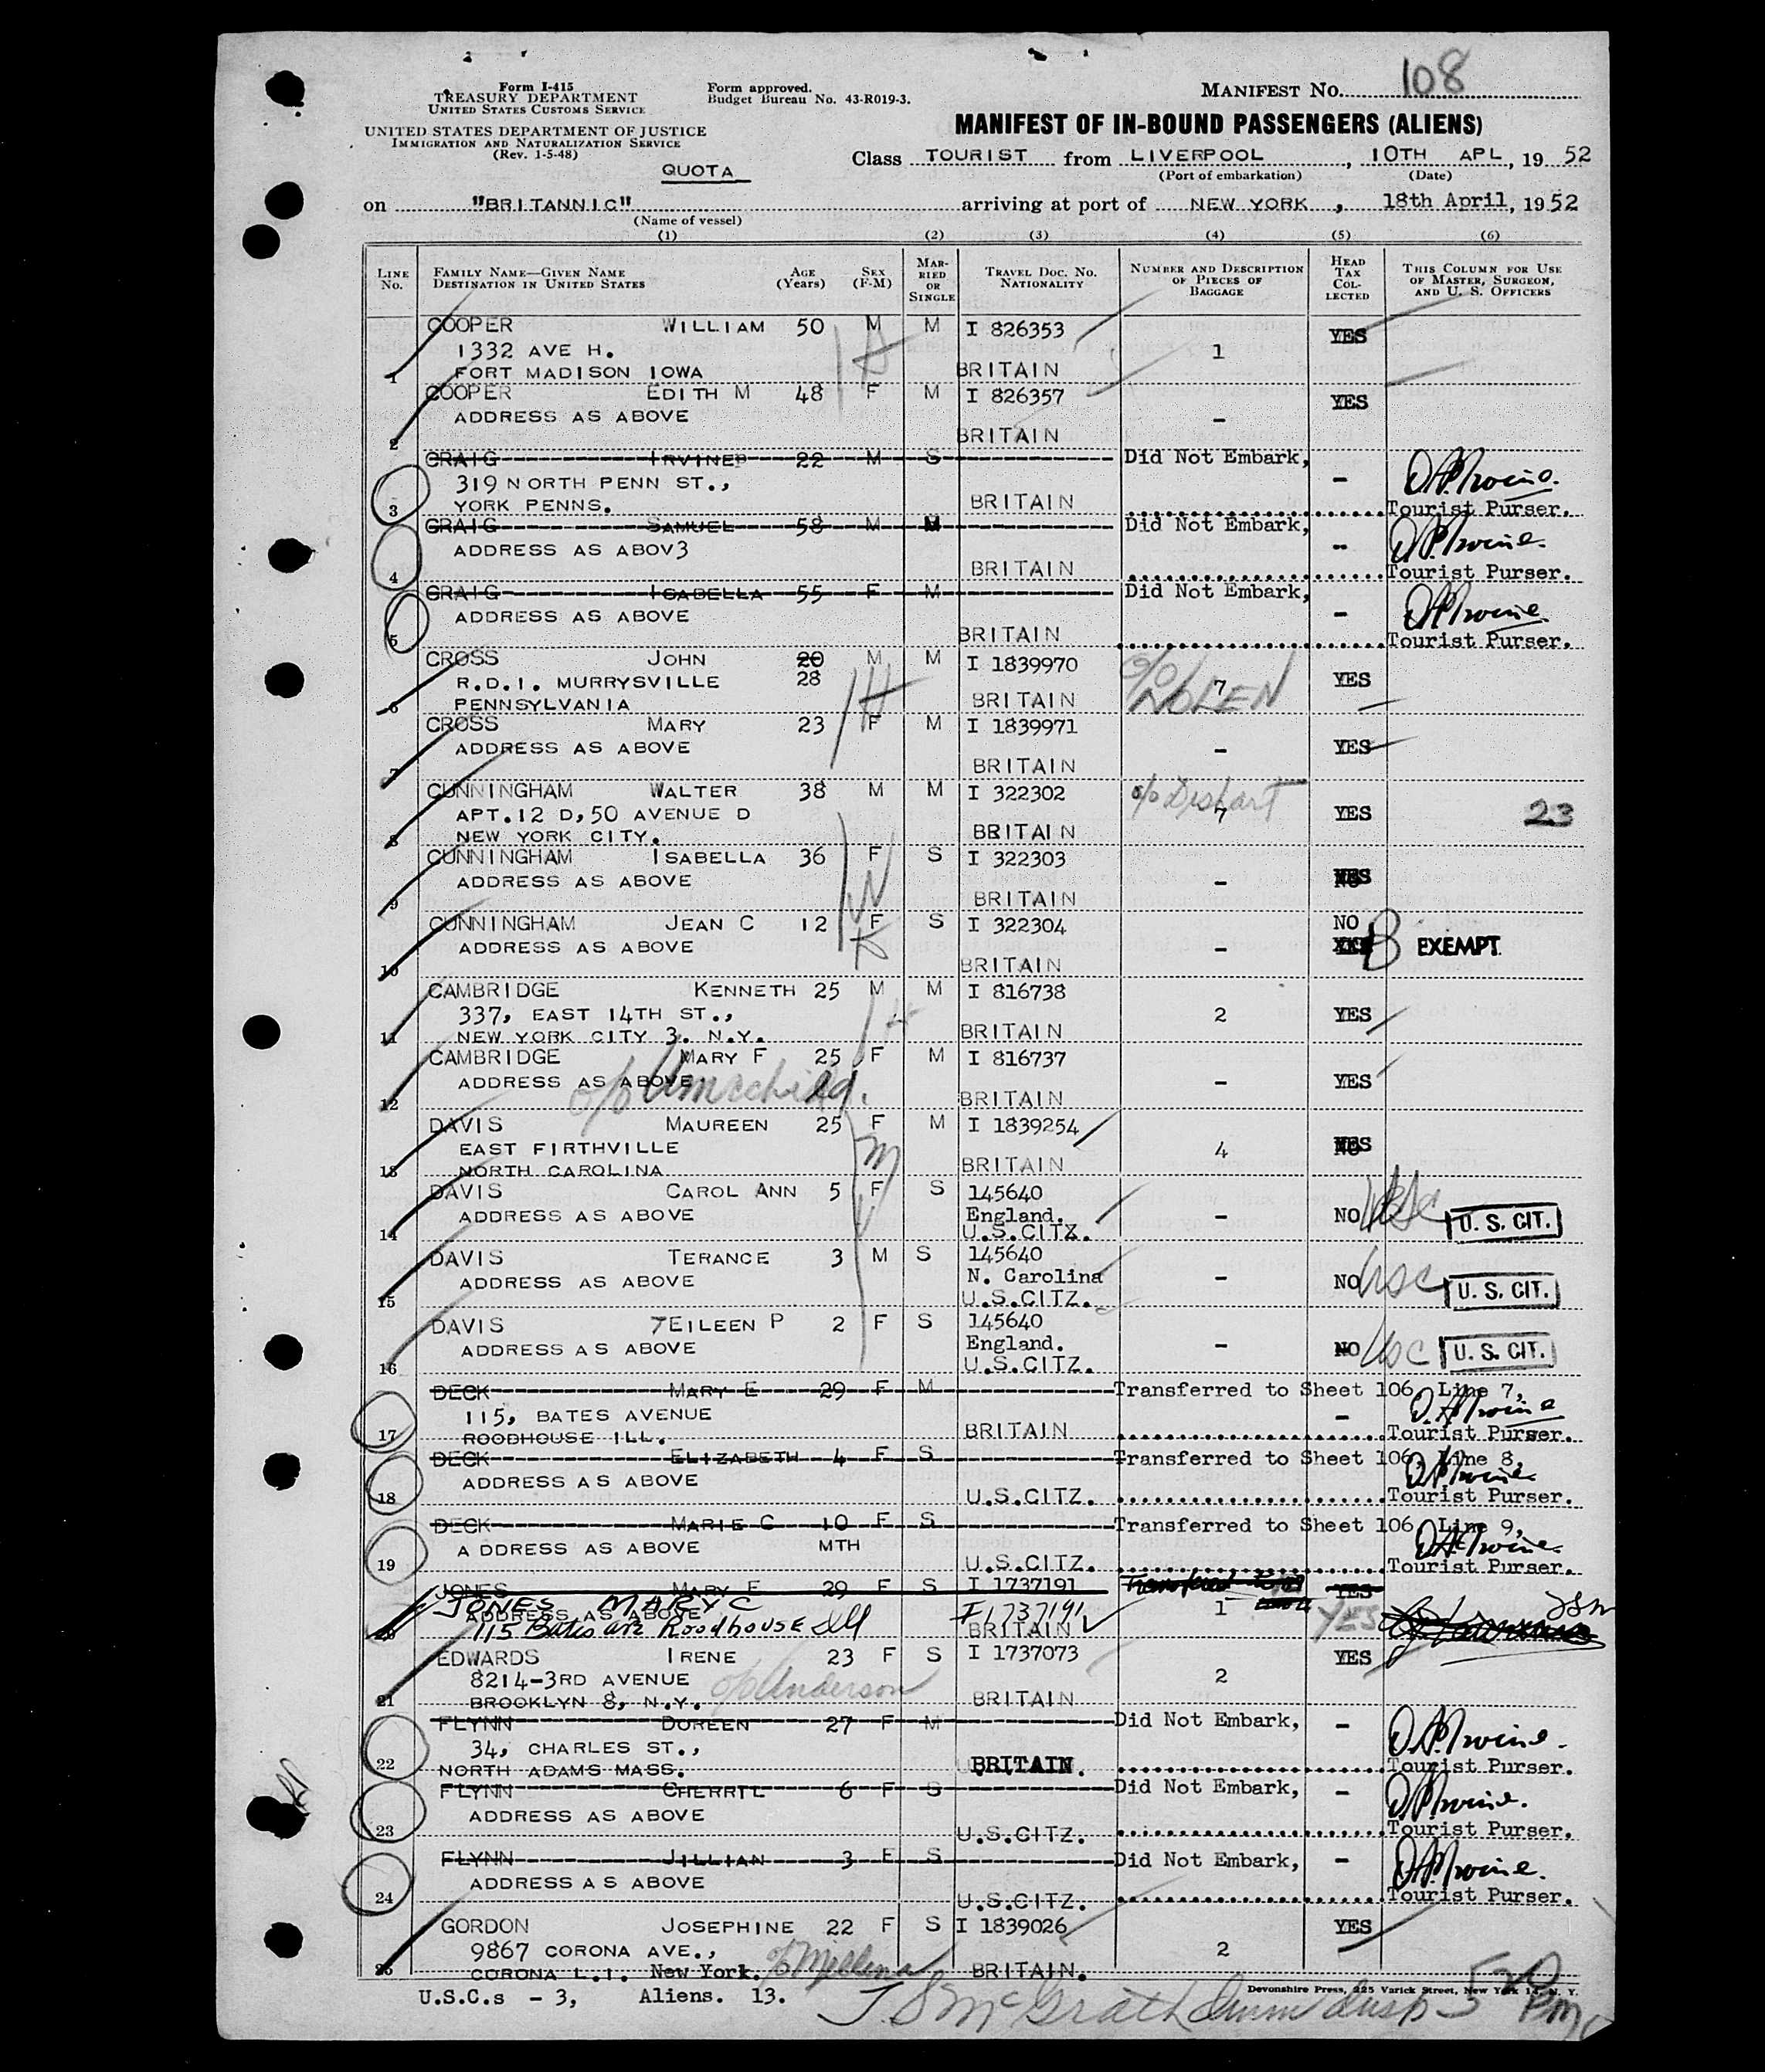 108
Form I-415
TREASURY DEPARTMENT
UNITED STATES CUSTOMS SERVICE
Form approved.
Budget Bureau No. 43-R019-3.
MANIFEST NO.
UNITED STATES DEPARTMENT OF JUSTICE
IMMIGRATION AND NATURALIZATION SERVICE
(Rev. 1-5-48)
MANIFEST OF IN-BOUND PASSENGERS (ALIENS)
QUOTA
Class TOURIST from LIVERPOOL, 10TH APL, 19 52
(Port of embarkation) (Date)
on "BRITANNIC" arriving at port of NEW YORK, 18th April, 1952
(Name of vessel)
(1) (2) (3) (4) (5) (6)
LINE NO. FAMILY NAME—GIVEN NAME DESTINATION IN UNITED STATES AGE (Years) SEX (F-M) MARRIED OR SINGLE TRAVEL DOC. NO. NATIONALITY NUMBER AND DESCRIPTION OF PIECES OF BAGGAGE HEAD TAX COLLECTED THIS COLUMN FOR USE OF MASTER, SURGEON, AND U. S. OFFICERS
COOPER WILLIAM 50 M M I 826353 YES
1332 AVE H. 1
1 FORT MADISON IOWA BRITAIN
COOPER EDITH M 48 F M I 826357 YES
ADDRESS AS ABOVE -
2 BRITAIN
CRAIG IRVINE 22 M S Did Not Embark,
319 NORTH PENN ST., -
3 YORK PENNS. BRITAIN Tourist Purser.
CRAIG SAMUEL 58 M M Did Not Embark,
ADDRESS AS ABOV3 --
4 BRITAIN Tourist Purser.
CRAIG ISABELLA 55 F M Did Not Embark,
ADDRESS AS ABOVE -
5 BRITAIN Tourist Purser.
CROSS JOHN 20 M M I 1839970
R.D.I. MURRYSVILLE 28 7 YES
6 PENNSYLVANIA BRITAIN
CROSS MARY 23 F M I 1839971
ADDRESS AS ABOVE - YES
7 BRITAIN
CUNNINGHAM WALTER 38 M M I 322302
APT.12 D,50 AVENUE D 7 YES 23
8 NEW YORK CITY. BRITAIN
CUNNINGHAM ISABELLA 36 F S I 322303
ADDRESS AS ABOVE - YES
9 BRITAIN
CUNNINGHAM JEAN C 12 F S I 322304 NO
ADDRESS AS ABOVE - B EXEMPT.
10 BRITAIN
CAMBRIDGE KENNETH 25 M M I 816738
337, EAST 14TH ST., 2 YES
11 NEW YORK CITY 3. N.Y. BRITAIN
CAMBRIDGE MARY F 25 F M I 816737
ADDRESS AS ABOVE - YES
12 BRITAIN
DAVIS MAUREEN 25 F M I 1839254
EAST FIRTHVILLE 4 YES
13 NORTH CAROLINA BRITAIN
DAVIS CAROL ANN 5 F S 145640
ADDRESS AS ABOVE England. - NO USC U. S. CIT.
14 U.S.CITZ.
DAVIS TERANCE 3 M S 145640
ADDRESS AS ABOVE N. Carolina - NO USC U. S. CIT.
15 U.S.CITZ.
DAVIS TEILEEN P 2 F S 145640
ADDRESS AS ABOVE England. - NO USC U. S. CIT.
16 U.S.CITZ.
DECK MARY E 29 F M Transferred to Sheet 106, Line 7,
115, BATES AVENUE -
17 ROODHOUSE ILL. BRITAIN Tourist Purser.
DECK ELIZABETH 4 F S Transferred to Sheet 106, Line 8,
ADDRESS AS ABOVE
18 U.S.CITZ. Tourist Purser.
DECK MARIE C 10 F S Transferred to Sheet 106, Line 9,
A DDRESS AS ABOVE MTH
19 U.S.CITZ. Tourist Purser.
JONES MARY E 29 F S I 1737191 YES
JONES MARY C I 1737191 1 YES
ADDRESS AS ABOVE BRITAIN
20 115 Bates ave Roodhouse Ill
EDWARDS IRENE 23 F S I 1737073 YES
8214-3RD AVENUE c/o Anderson 2
21 BROOKLYN 8, N.Y. BRITAIN
FLYNN DOREEN 27 F M Did Not Embark, -
34, CHARLES ST.,
22 NORTH ADAMS MASS. BRITAIN. Tourist Purser.
FLYNN CHERRIL 6 F S Did Not Embark, -
ADDRESS AS ABOVE
23 U.S.CITZ. Tourist Purser.
FLYNN JILLIAN 3 F S Did Not Embark, -
ADDRESS A S ABOVE
24 U.S.CITZ. Tourist Purser.
GORDON JOSEPHINE 22 F S I 1839026 YES
9867 CORONA AVE., 2
25 CORONA L.I. New York. BRITAIN.
U.S.C.s - 3, Aliens. 13.
Devonshire Press, 225 Varick Street, New York 14, N. Y.
J. S McGrath Imm Insp